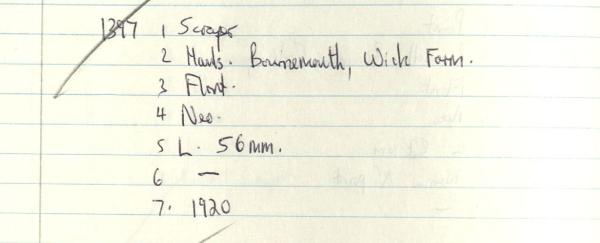 1397 1 Scraper
2 Hants. Bournemouth, Wick Farm.
3 Flint.
4 Neo.
5 L. 56mm.
6 —
7. 1920